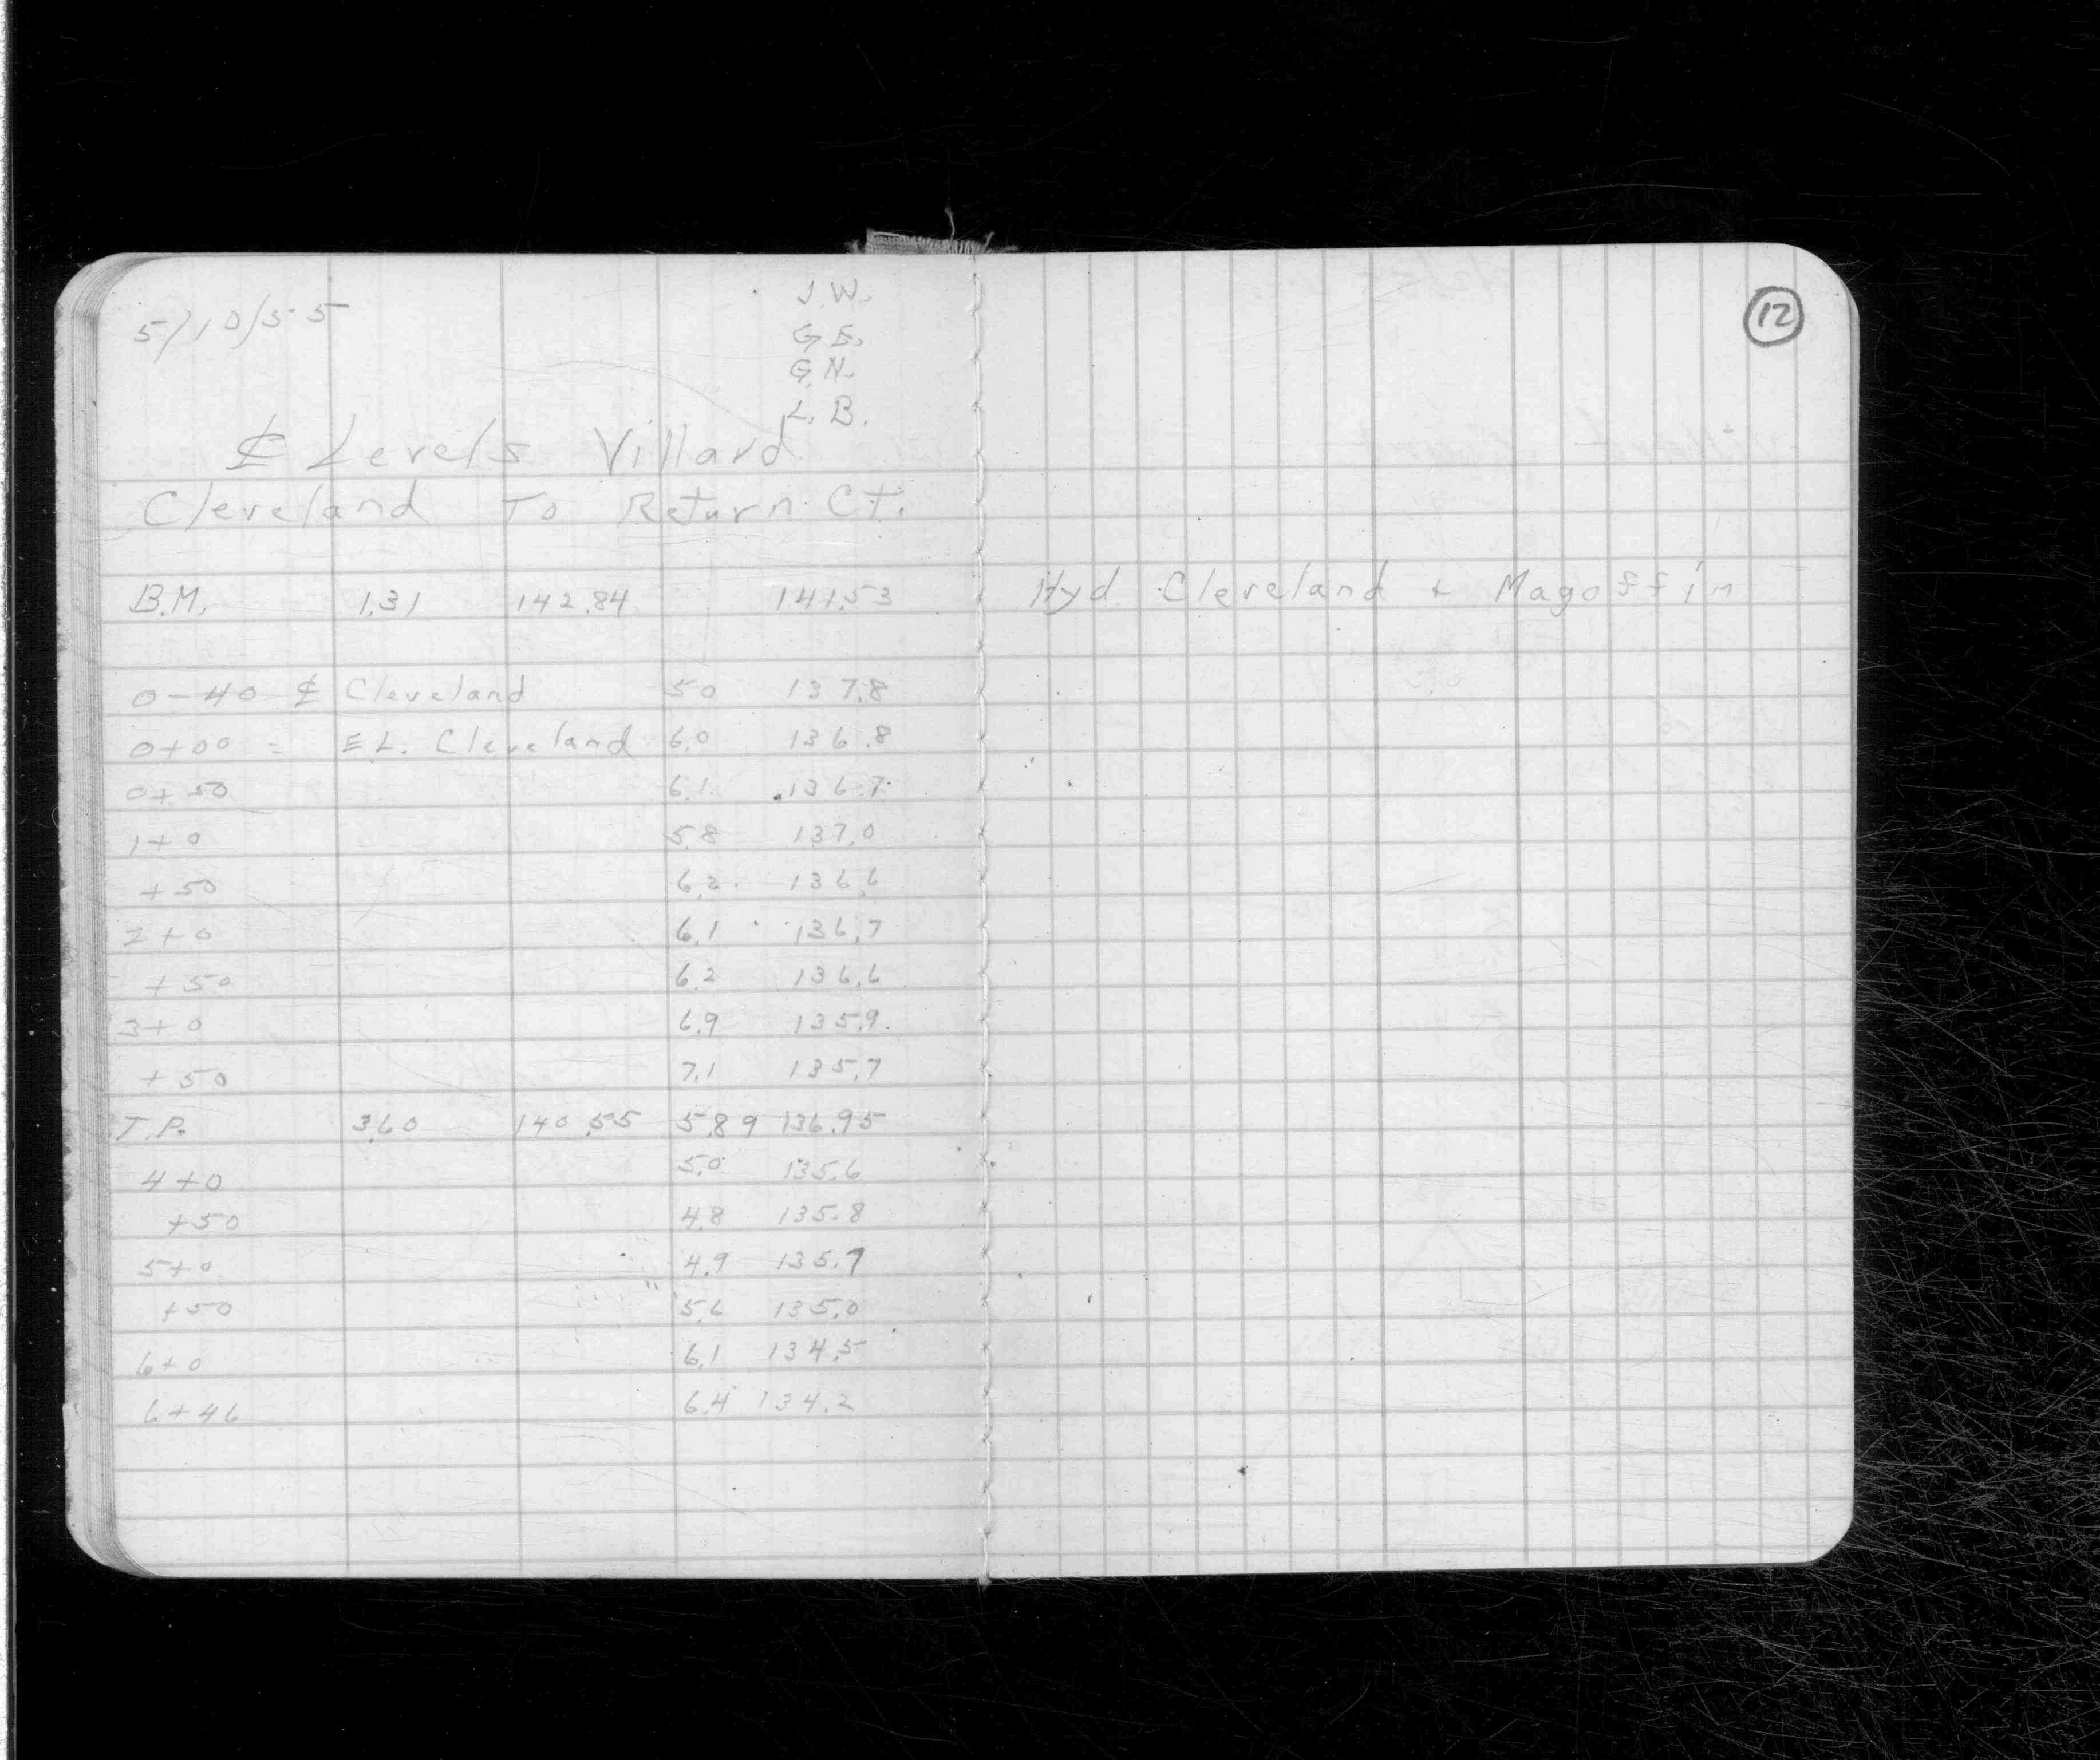 5/10/55
J.W.
G.E.
G.N.
L.B.
12
℄ Levels Villard
Cleveland To Return Ct.
B.M. 1.31 142.84 141.53 Hyd. Cleveland + Magoffin
0-40 ℄ Cleveland 5.0 137.8
0+00 = E.L. Cleveland 6.0 136.8
0+50 6.1 136.7
1+0 5.8 137.0
+50 6.2 136.6
2+0 6.1 136.7
+50 6.2 136.6
3+0 6.9 135.9
+50 7.1 135.7
T.P. 3.60 140.55 5.89 136.95
4+0 5.0 135.6
+50 4.8 135.8
5+0 4.9 135.7
+50 5.6 135.0
6+0 6.1 134.5
6+46 6.4 134.2